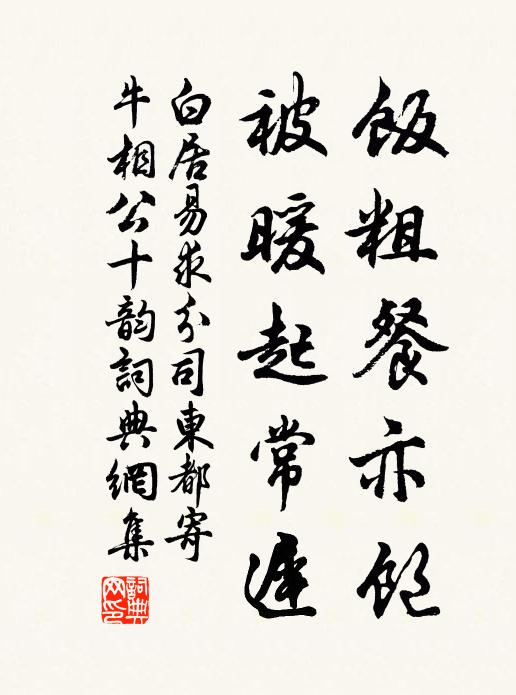 飯粗餐亦飽
被暖起常遲
白居易求分司東都寄
牛相公十韵詞典網集
詞典
网印